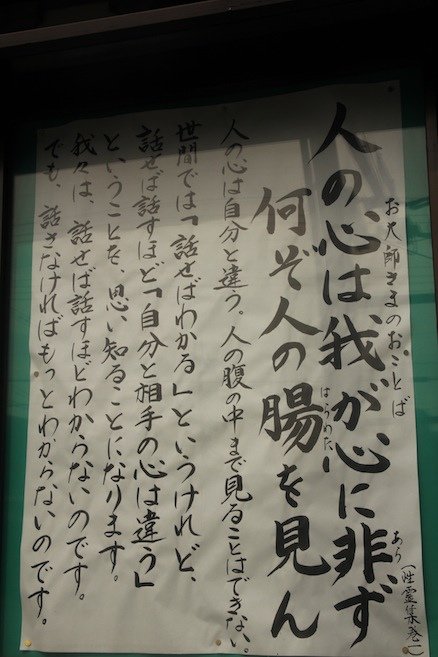 お大師さまのおことば
（性霊集
人の心は、我が心に非ず
あら
何ぞ人の腸を見ん
はらわた
人の心は自分と違う。人の腹の中まで見ることはできない。
世間では「話せばわかる」というけれど、
話せば話すほど「自分と相手の心は違う」
ということを、思い知ることになります。
我々は、話せば話すほどわからないのです。
でも、話さなければもっとわからないのです。